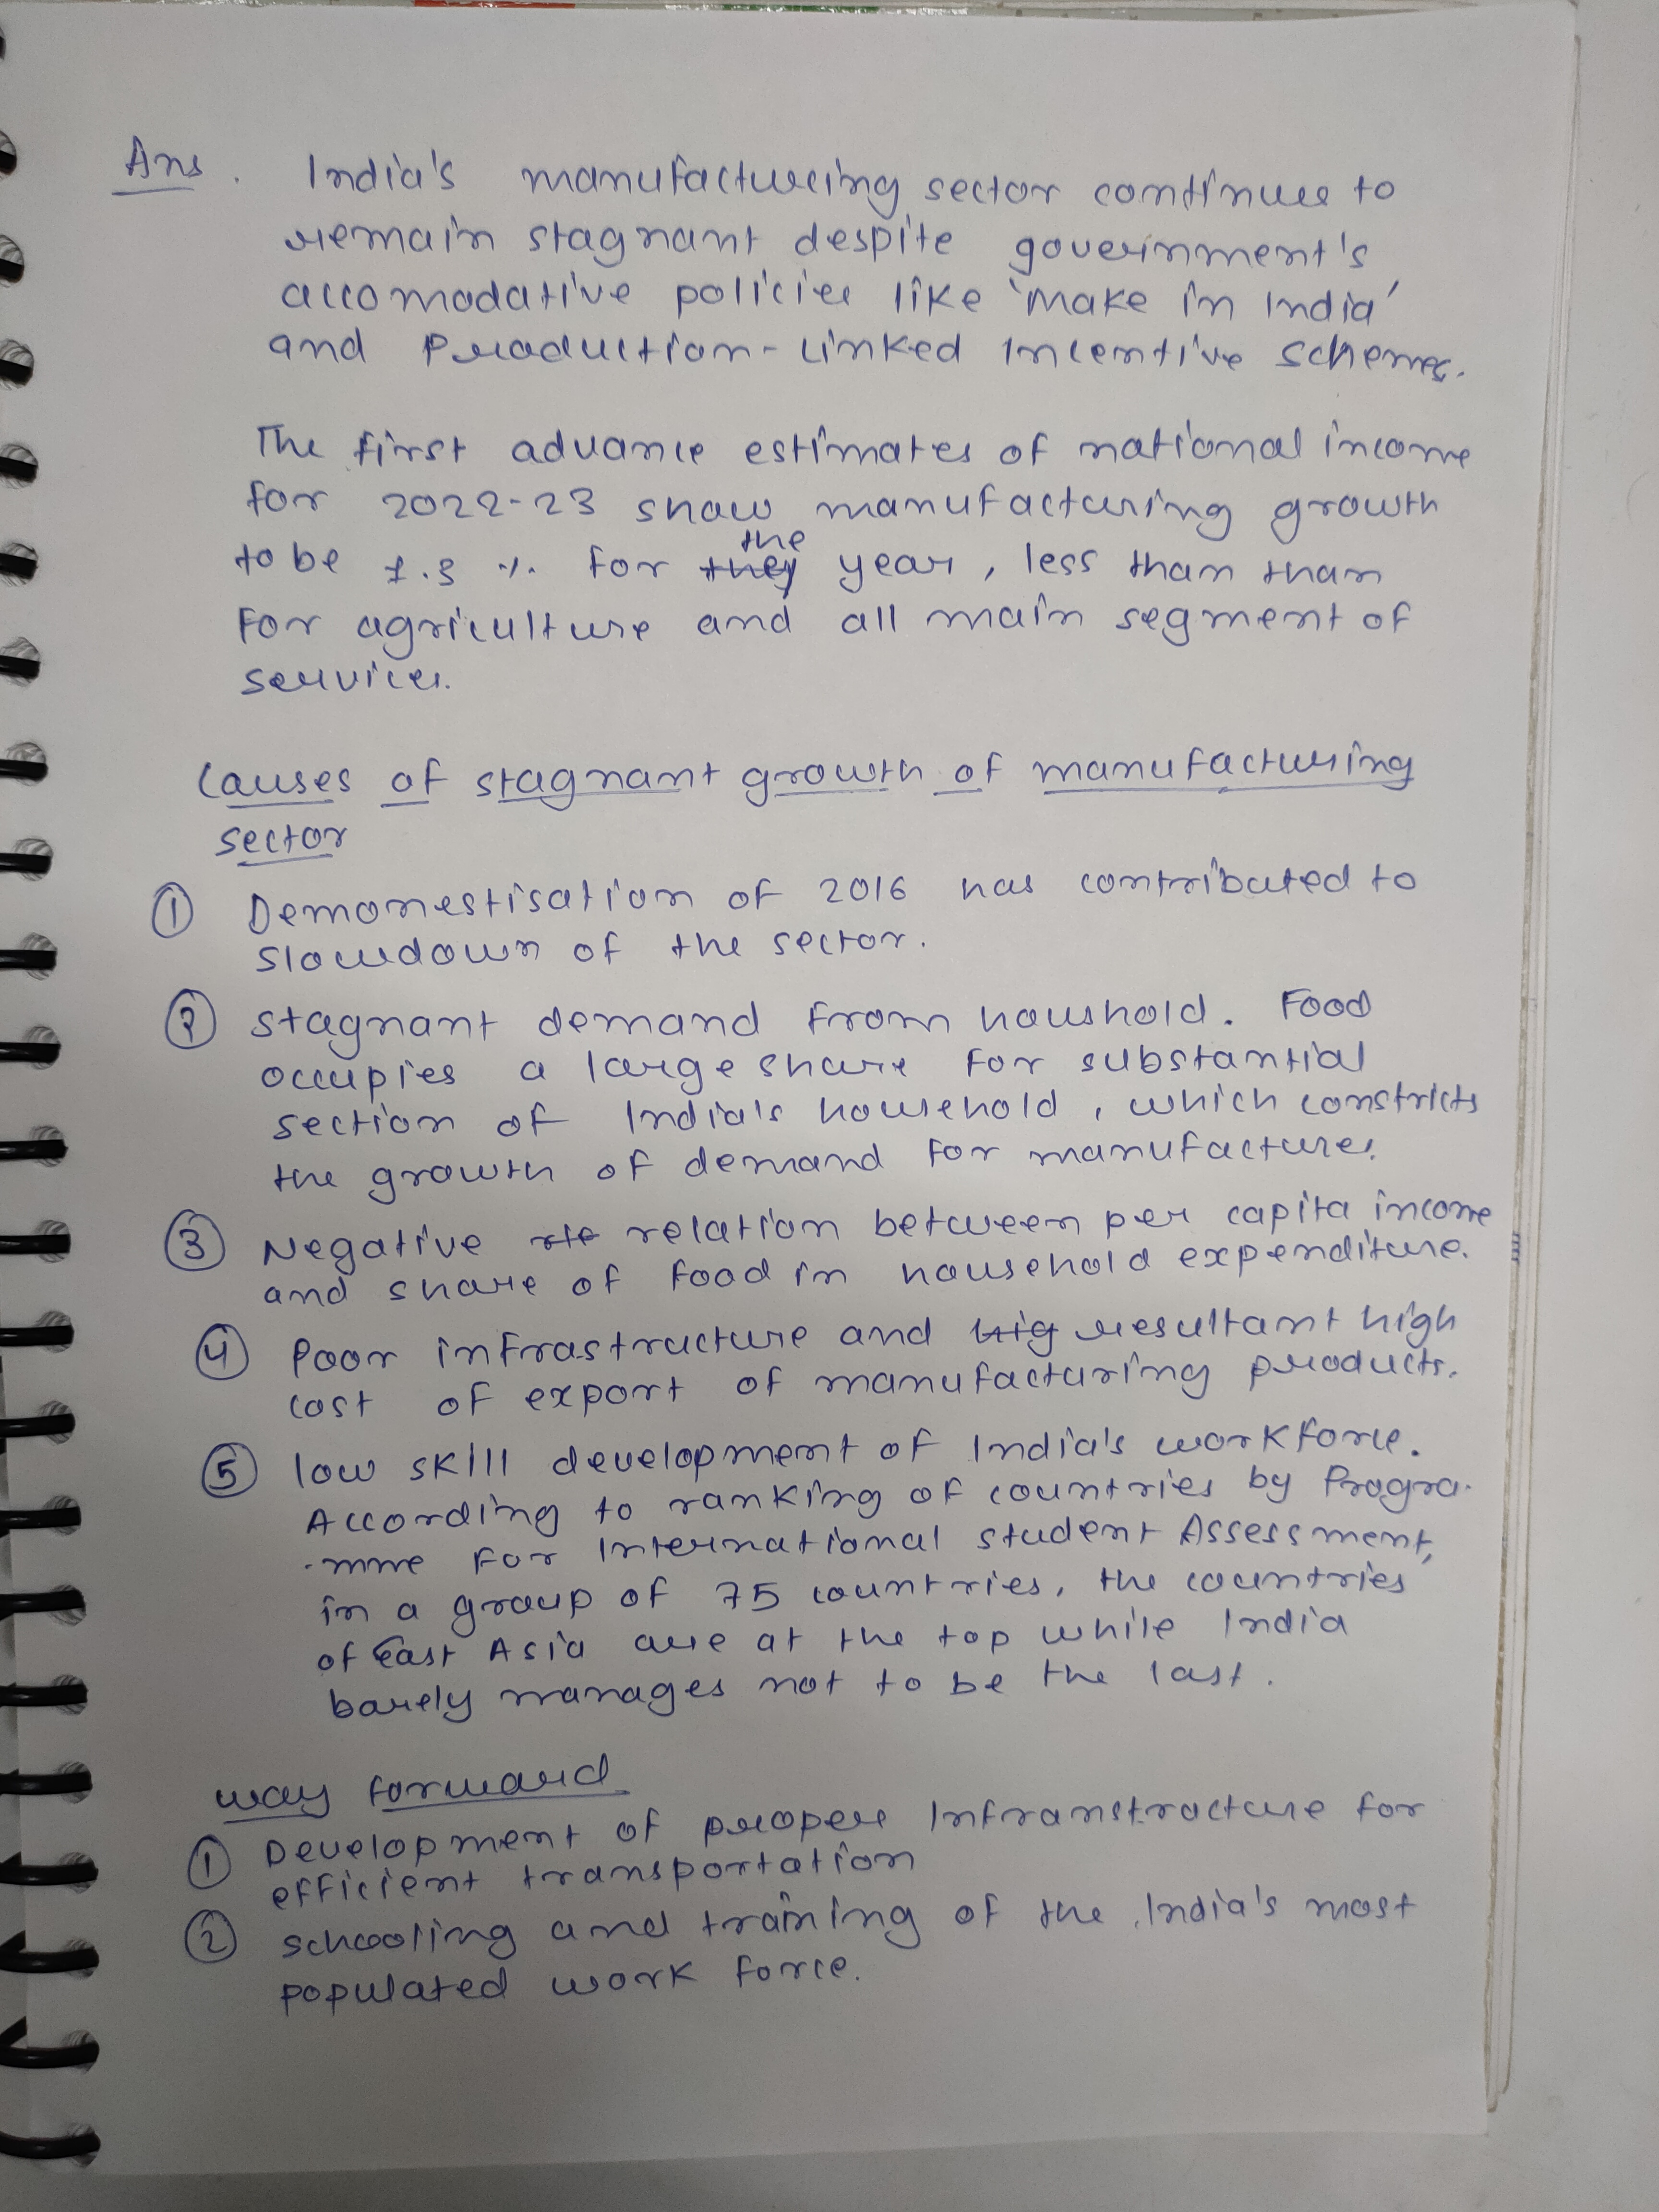 Ans. India's manufacturing sector continue to
remain stagnant despite government's
accomodative policies like 'Make in India'
and Production-Linked Incentive Schemes.
The first advance estimates of national income
for 2022-23 show manufacturing growth
to be 1.3 % for they the year, less than than
for agriculture and all main segment of
services.
Causes of stagnant growth of manufacturing
sector
① Demonestisation of 2016 has contributed to
slowdown of the sector.
② stagnant demand from houshold. Food
occupies a large share for substantial
section of India's household, which constricts
the growth of demand for manufactures.
③ Negative rle relation between per capita income
and share of food in household expenditure.
④ Poor infrastructure and hig resultant high
cost of export of manufacturing products.
⑤ low skill development of India's workforce.
According to ranking of countries by Progra-
-mme For International student Assessment,
in a group of 75 countries, the countries
of East Asia are at the top while India
barely manages not to be the last.
way forward
① Development of proper Infranstracture for
efficient transportation
② schooling and training of the India's most
populated work force.